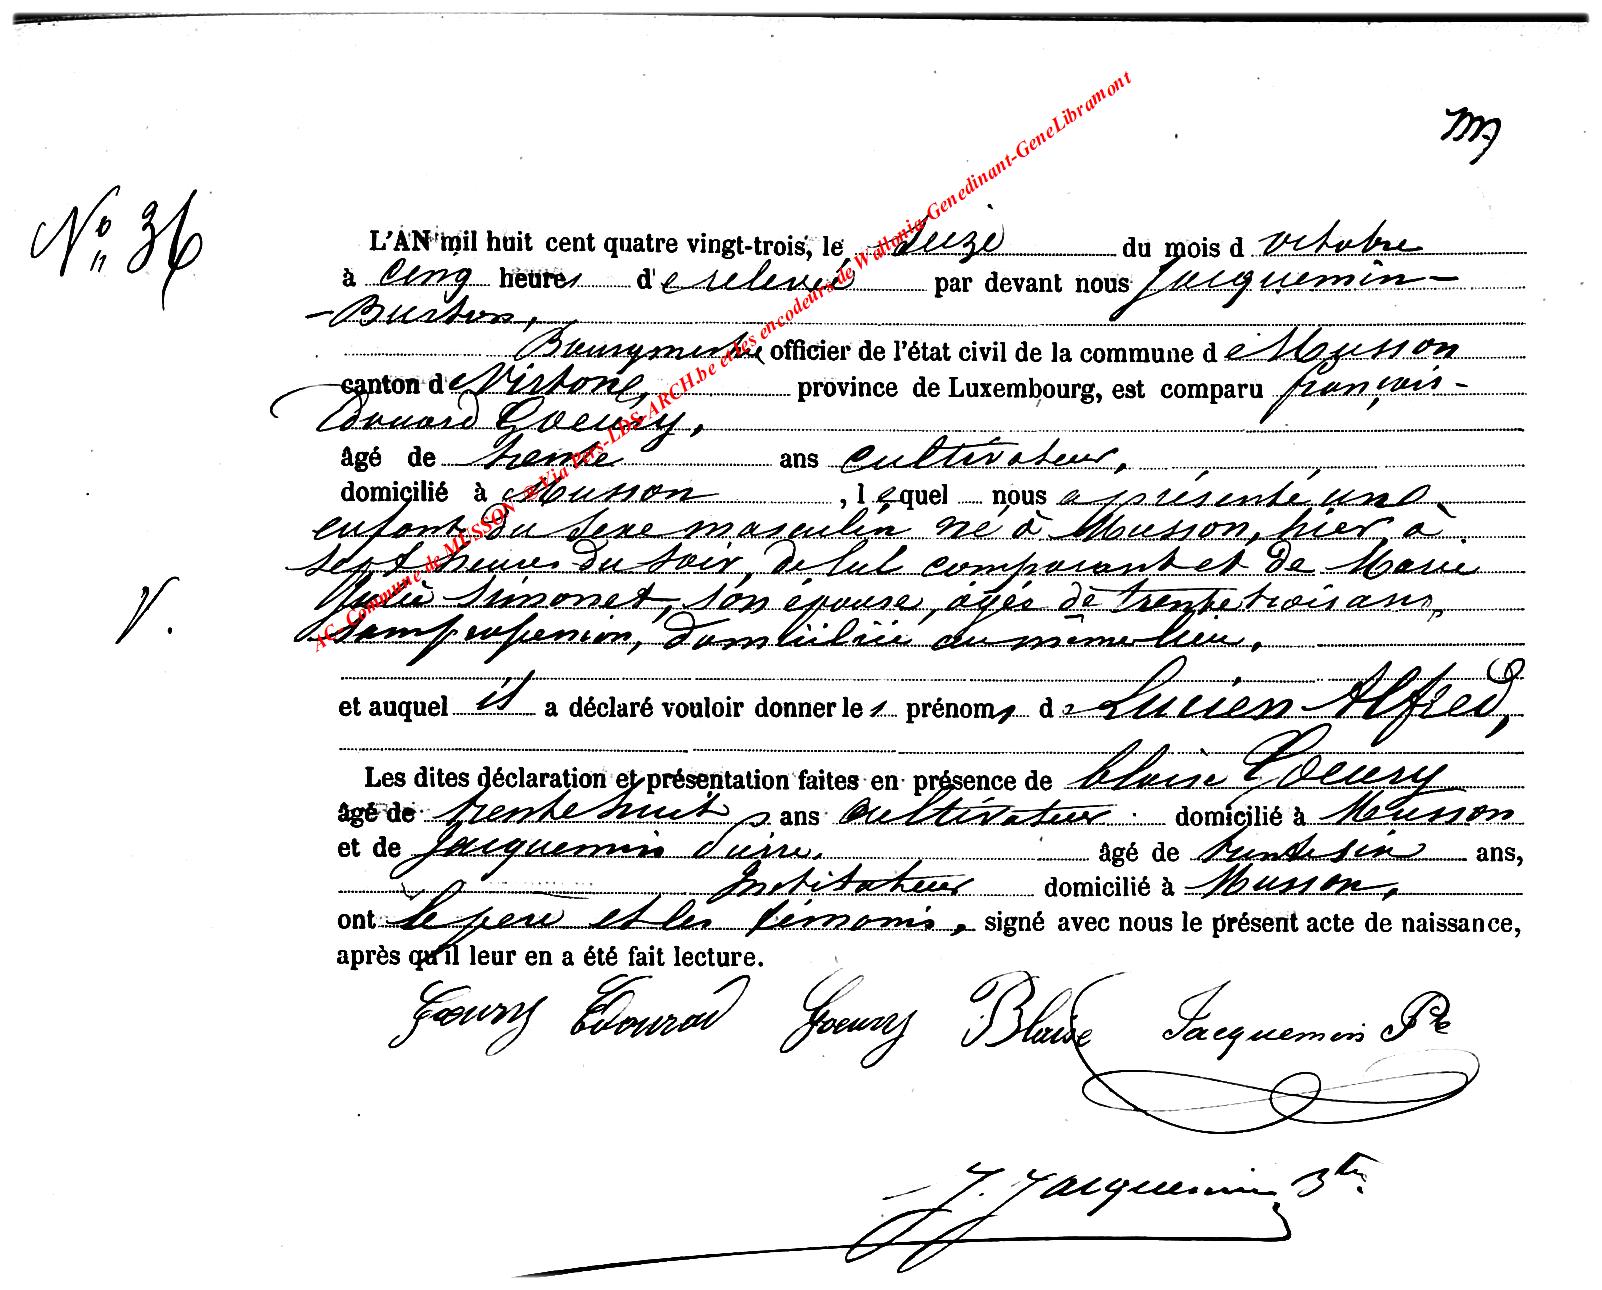 N° 36
L'AN mil huit cent quatre vingt-trois, le seize du mois d'octobre
à cinq heures de relevée par devant nous Jacquemin-
-Burton,
Bourgmestre officier de l'état civil de la commune de Musson
canton de Virton, province de Luxembourg, est comparu françois-
Edouard Goeury,
âgé de trente ans cultivateur,
domicilié à Musson, lequel nous a présenté un
enfant du sexe masculin né à Musson, hier à
sept heures du soir, de lui comparant et de Marie
Julie Simonet, son épouse, âgés de trente trois ans,
sans profession, domiciliée au même lieu,
et auquel il a déclaré vouloir donner les prénoms de Lucien Alfred,
Les dites déclaration et présentation faites en présence de blaise Goeury
âgé de trente huit ans cultivateur domicilié à Musson
et de Jacquemin Pierre, âgé de trente six ans,
Instituteur domicilié à Musson,
ont le père et les témoins, signé avec nous le présent acte de naissance,
après qu'il leur en a été fait lecture.
V.
Goeury Edouard Goeury Blaise Jacquemin Pre
J. Jacquemin Btn.
AC-Commune de MUSSON Via Pers-LDS-ARCH.be et les encodeurs de Wallonia-Genedinant-GeneLibramont